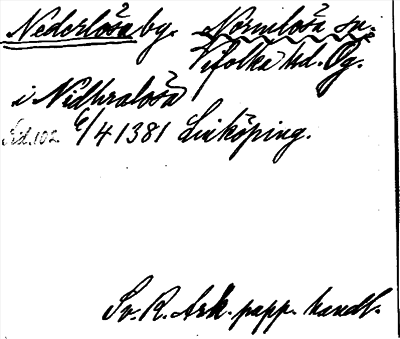 Nederlösa bg. Normlösa sn.
Vifolka hd. Ög.
i Nidhralösa
6/4 1381 Linköping.
Sv. R. Ark. papp. handl.